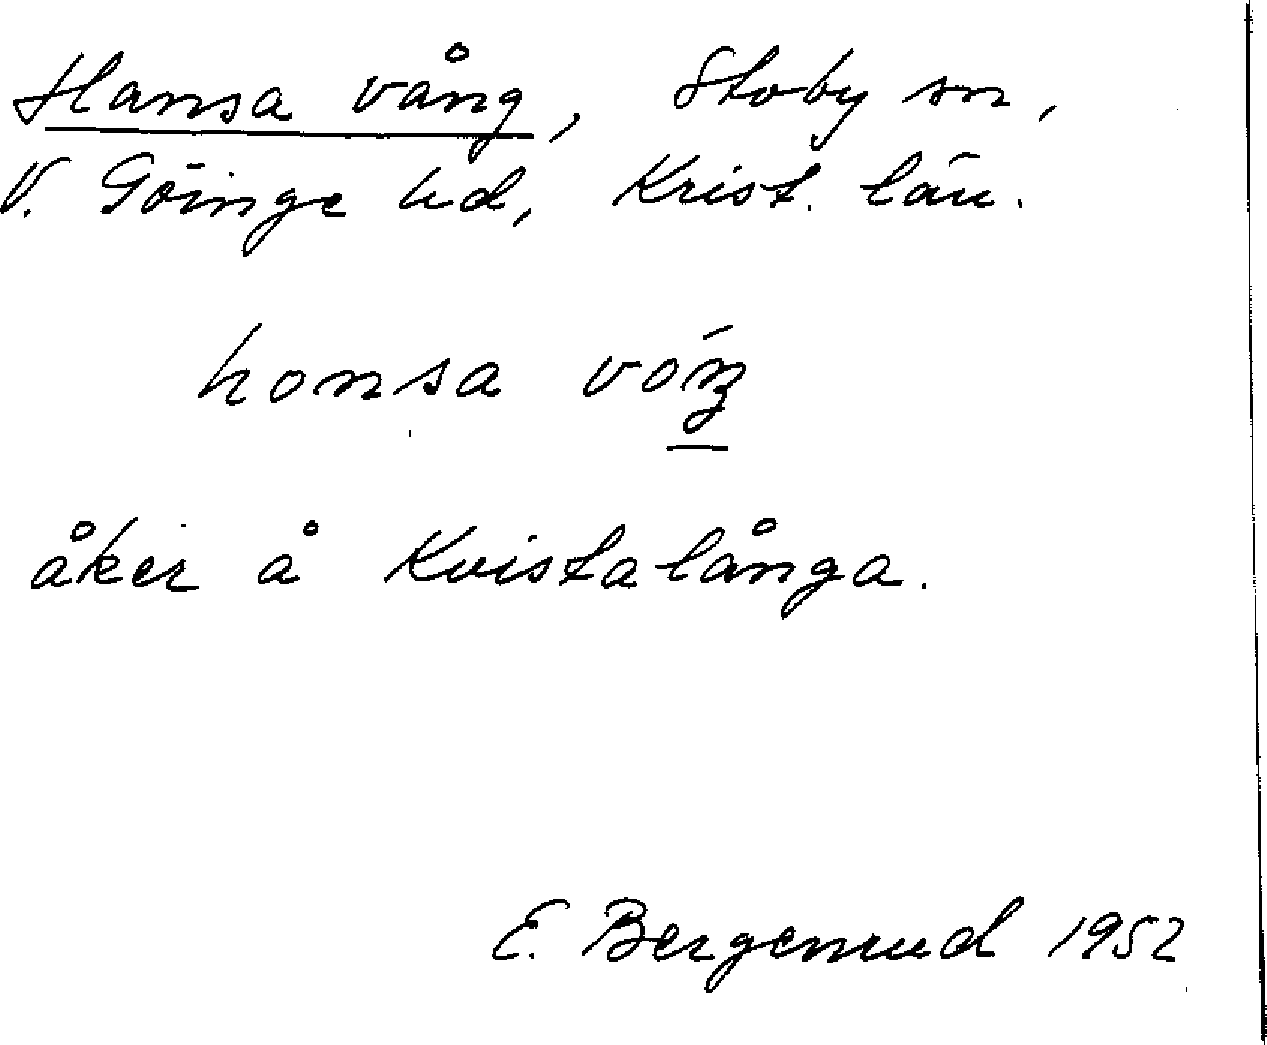 Hansa vång, Stoby sn,
V. Göinge hd, Krist. län.
honsa
åker å Kvistalånga.
E. Bergenrud 1952